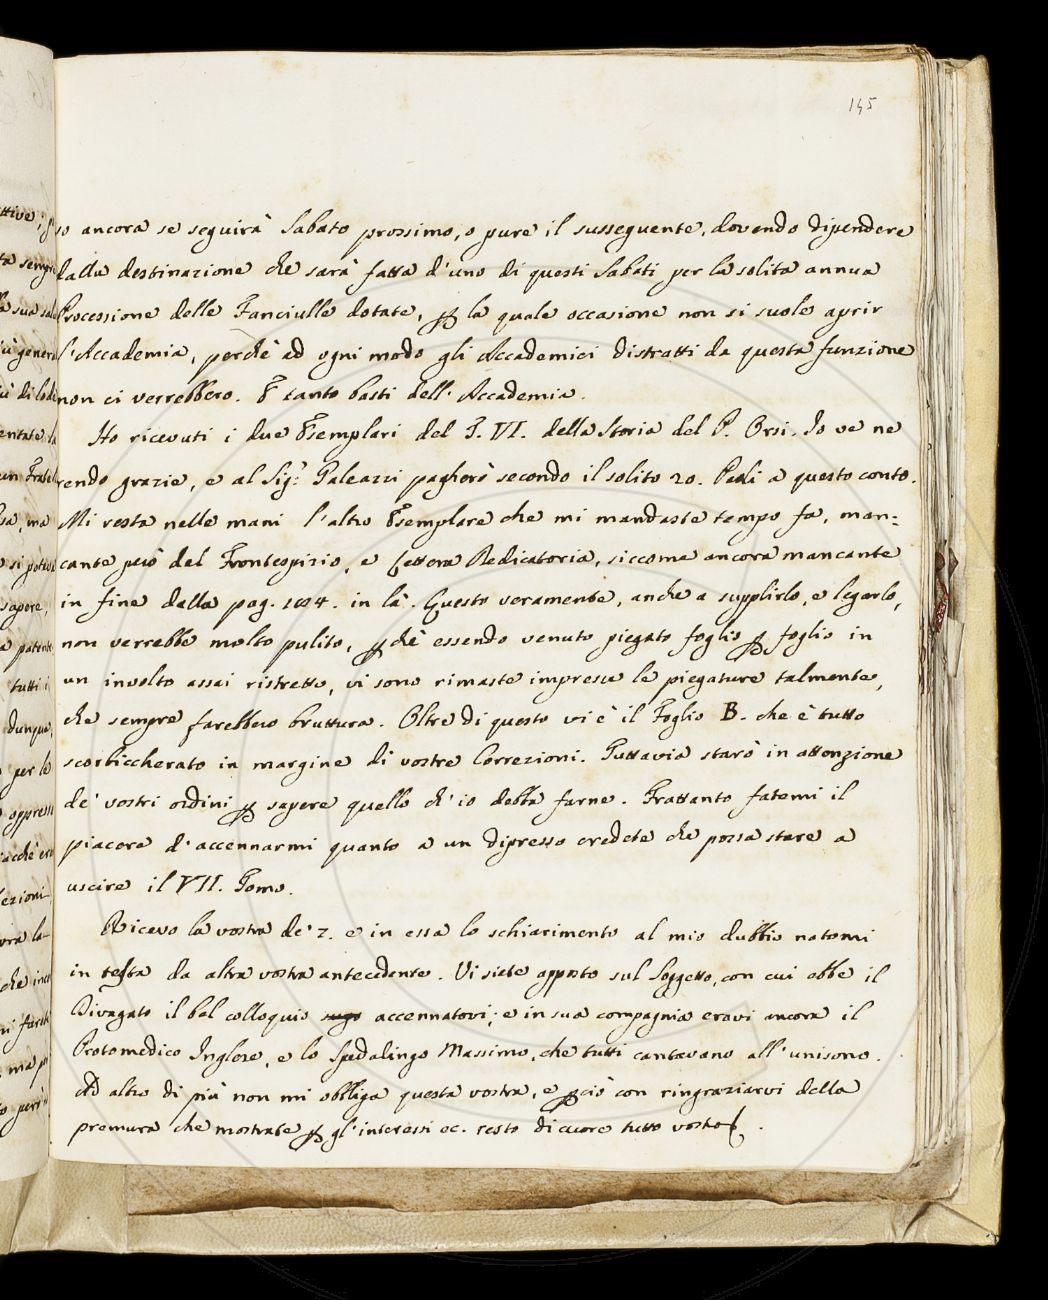 145
so ancora se seguirà Sabato prossimo, o pure il susseguente, dovendo dipendere
dalla destinazione che sarà fatta d'uno di questi Sabati per la solita annua
Processione delle Fanciulle dotate, ꝑ la quale occasione non si suole aprir
l'Accademia, perchè ad ogni modo gli Accademici distratti da questa funzione
non ci verrebbero. E tanto basti dell'Accademia.
Ho ricevuti i due Esemplari del T. VI. della Storia del P. Orsi. Io ve ne
rendo grazie, e al Sig.r Galeazzi pagherò secondo il solito 20. Paoli a questo conto.
Mi resta nelle mani l'altro Esemplare che mi mandaste tempo fa, man=
cante però del Frontespizio, e Lettera Dedicatoria, siccome ancora mancante
in fine dalla pag. 184. in là. Questo veramente, anche a supplirlo, e legarlo,
non verrebbe molto pulito, ꝑchè essendo venuto piegato foglio ꝑ foglio in
un involto assai ristretto, vi sono rimaste impresse le piegature talmente,
che sempre farebbero bruttura. Oltre di questo vi è il Foglio B. che è tutto
scorbiccherato in margine di vostre Correzioni. Tuttavia starò in attenzione
de' vostri ordini ꝑ sapere quello ch'io debba farne. Frattanto fatemi il
piacere d'accennarmi quanto a un dipresso credete che possa stare a
uscire il VII. Tomo.
Ricevo la vostra de' 7. e in essa lo schiarimento al mio dubbio natomi
in testa da altra vostra antecedente. Vi siete apposto sul Soggetto, con cui ebbe il
Divagato il bel colloquio accennatovi; e in sua compagnia eravi ancora il
Protomedico Inglese, e lo Spedalingo Massimo, che tutti cantavano all'unisono.
Ad altro di più non mi obbliga questa vostra, e ꝑciò con ringraziarvi della
premura che mostrate ꝑ gl'interessi ec. resto di cuore tutto vostro.